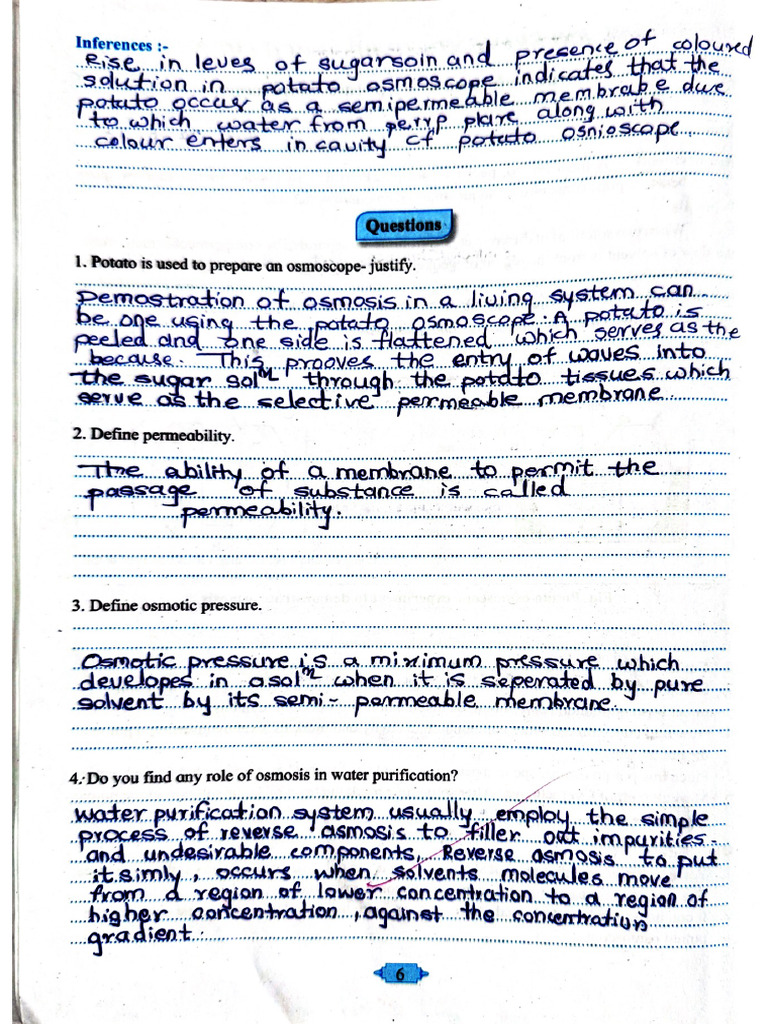 Inferences :-
Rise in leves of sugarsoin and presence of coloured
solution in potato osmoscope indicates that the
potato occur as a semipermeable membrabe due
to which water from perrp plare along with
colour enters in cavity of potato osnioscope
Questions
1. Potato is used to prepare an osmoscope- justify.
Demostration of osmosis in a living system can
be one using the potato osmoscope. A potato is
peeled and one side is flattened which serves as the
because. This prooves the entry of waves into
the sugar solⁿ through the potato tissues which
serve as the selective permeable membrane
2. Define permeability.
The ability of a membrane to permit the
passage of substance is called
permeability.
3. Define osmotic pressure.
Osmotic pressure is a miximum pressure which
developes in a solⁿ when it is seperated by pure
solvent by its semi-permeable membrane.
4. Do you find any role of osmosis in water purification?
Water purification system usually employ the simple
process of reverse asmosis to filler out impurities
and undesirable components, Reverse asmosis to put
it simly, occurs when solvents molecules move
from a region of lower concentration to a region of
higher concentration, against the concentration
gradient.
6